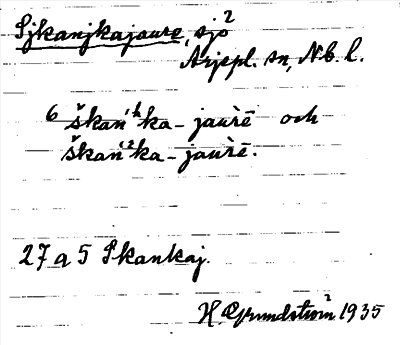 Sjkanjkajaure, sjö²
Arjepl. sn, Nb. l.
6 škań½ka-jaùrē och
škań²ka-jaùrē.
27 a 5 Skankaj.
H. Grundström² 1935